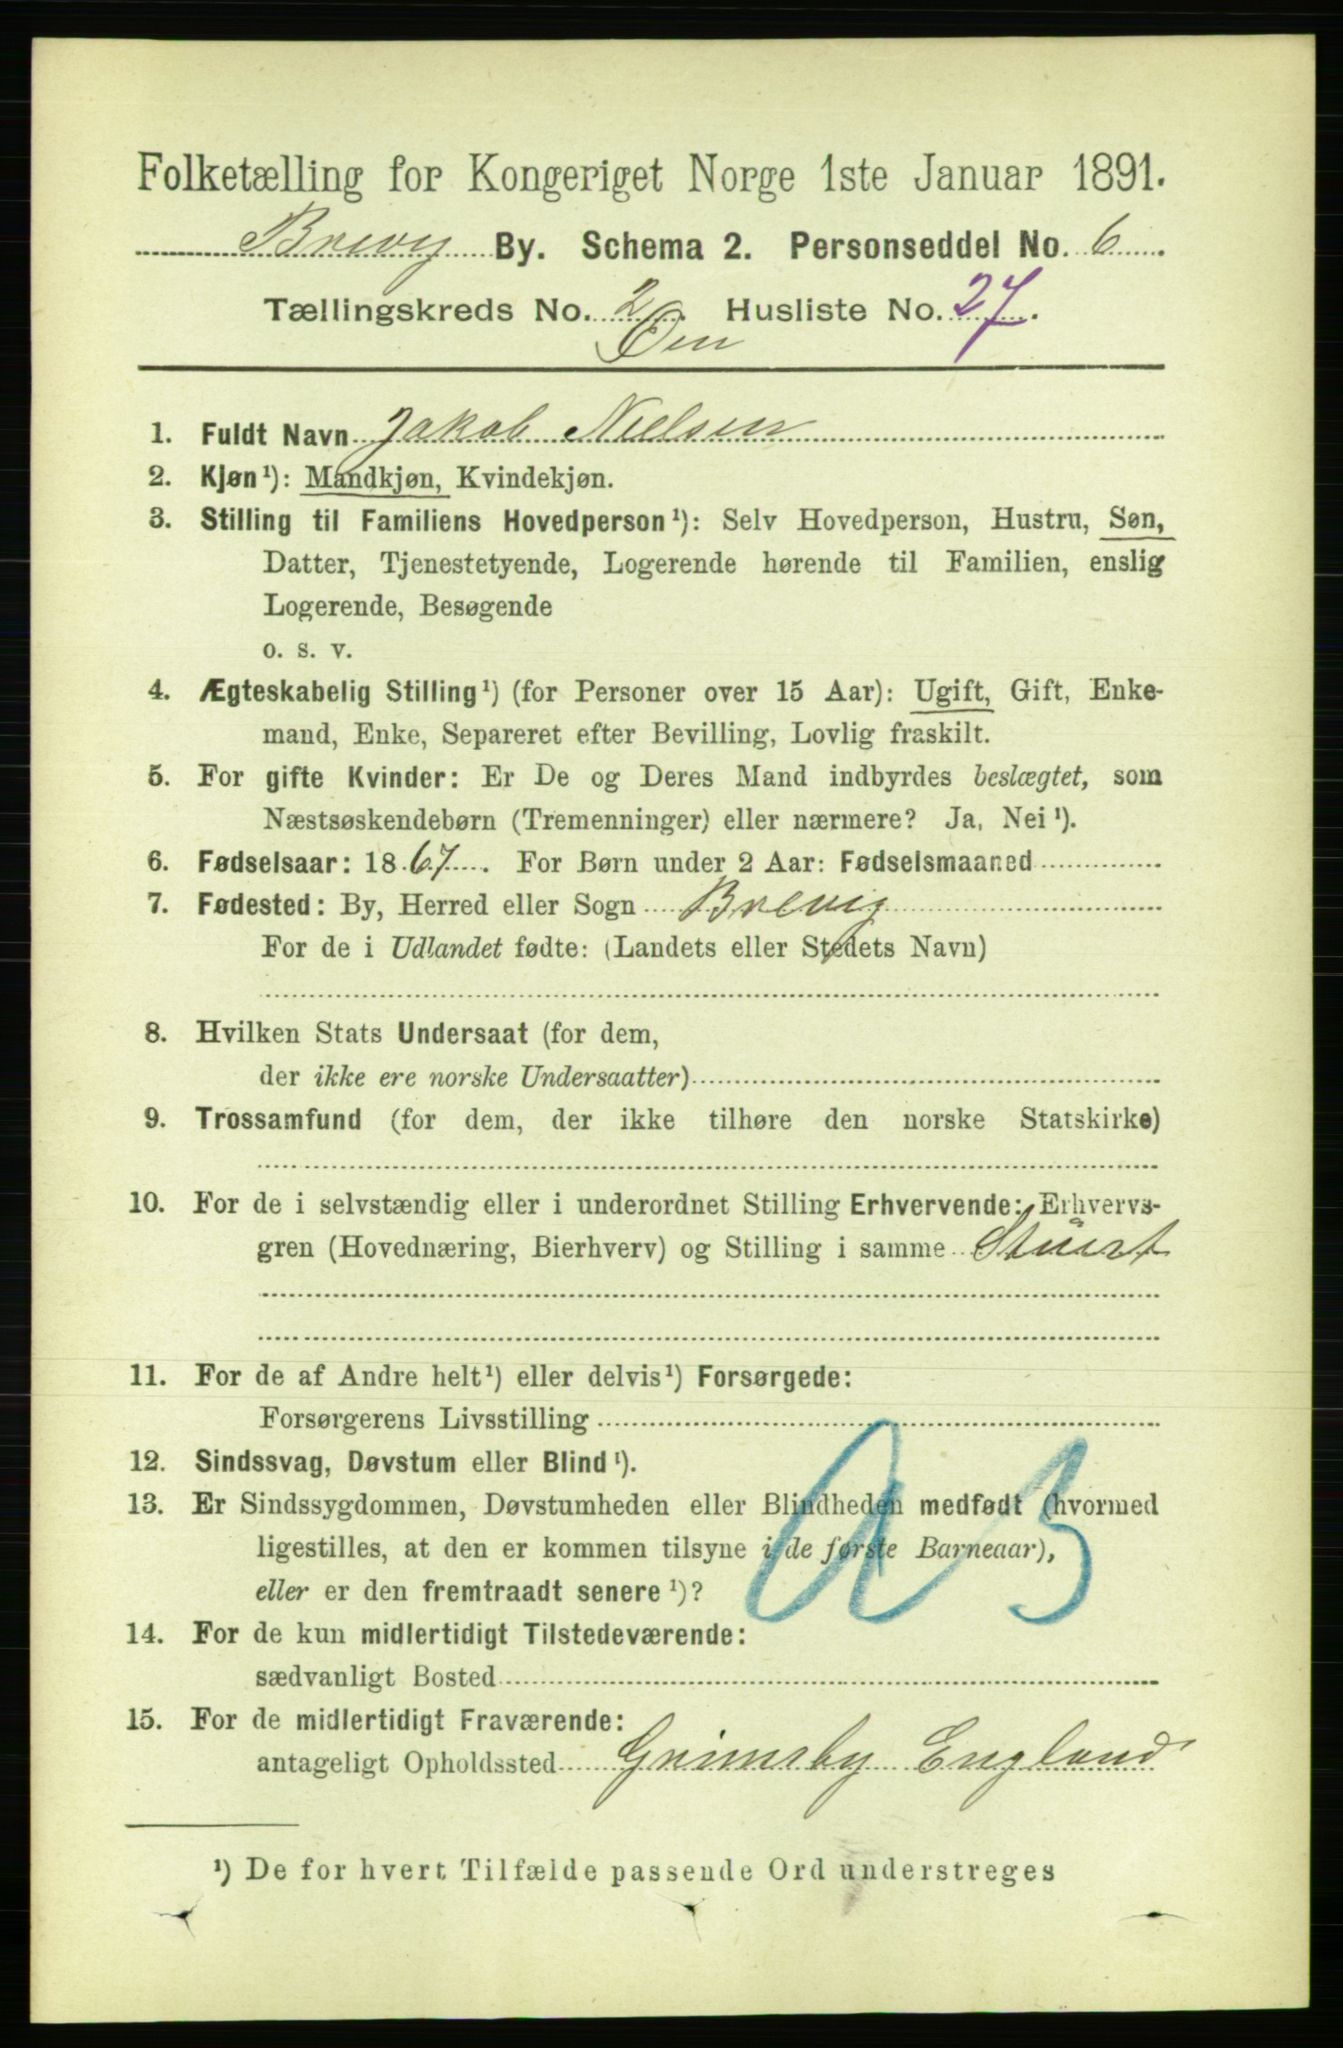 Folketælling for Kongeriget Norge 1ste Januar 1891.
Brevig By. Schema 2. Personseddel No. 6
Tællingskreds No. 2 Husliste No. 27.
Øen
1. Fuldt Navn Jakob Nielsen
2. Kjøn¹): Mandkjøn, Kvindekjøn.
3. Stilling til Familiens Hovedperson¹): Selv Hovedperson, Hustru, Søn,
Datter, Tjenestetyende, Logerende hørende til Familien, enslig
Logerende, Besøgende
o. s. v.
4. Ægteskabelig Stilling¹) (for Personer over 15 Aar): Ugift, Gift, Enke-
mand, Enke, Separeret efter Bevilling, Lovlig fraskilt.
5. For gifte Kvinder: Er De og Deres Mand indbyrdes beslægtet, som
Næstsøskendebørn (Tremenninger) eller nærmere? Ja, Nei¹).
6. Fødselsaar: 1867. For Børn under 2 Aar: Fødselsmaaned
7. Fødested: By, Herred eller Sogn Brevig
For de i Udlandet fødte: (Landets eller Stedets Navn)
8. Hvilken Stats Undersaat (for dem,
der ikke ere norske Undersaatter)
9. Trossamfund (for dem, der ikke tilhøre den norske Statskirke)
10. For de i selvstændig eller i underordnet Stilling Erhvervende: Erhvervs-
gren (Hovednæring, Bierhverv) og Stilling i samme Stuert
11. For de af Andre helt¹) eller delvis¹) Forsørgede:
Forsørgerens Livsstilling
12. Sindssvag, Døvstum eller Blind¹).
13. Er Sindssygdommen, Døvstumheden eller Blindheden medfødt (hvormed
ligestilles, at den er kommen tilsyne i de første Barneaar),
eller er den fremtraadt senere¹)?
14. For de kun midlertidigt Tilstedeværende:
sædvanligt Bosted
15. For de midlertidigt Fraværende:
antageligt Opholdssted Grimsby England
¹) De for hvert Tilfælde passende Ord understreges